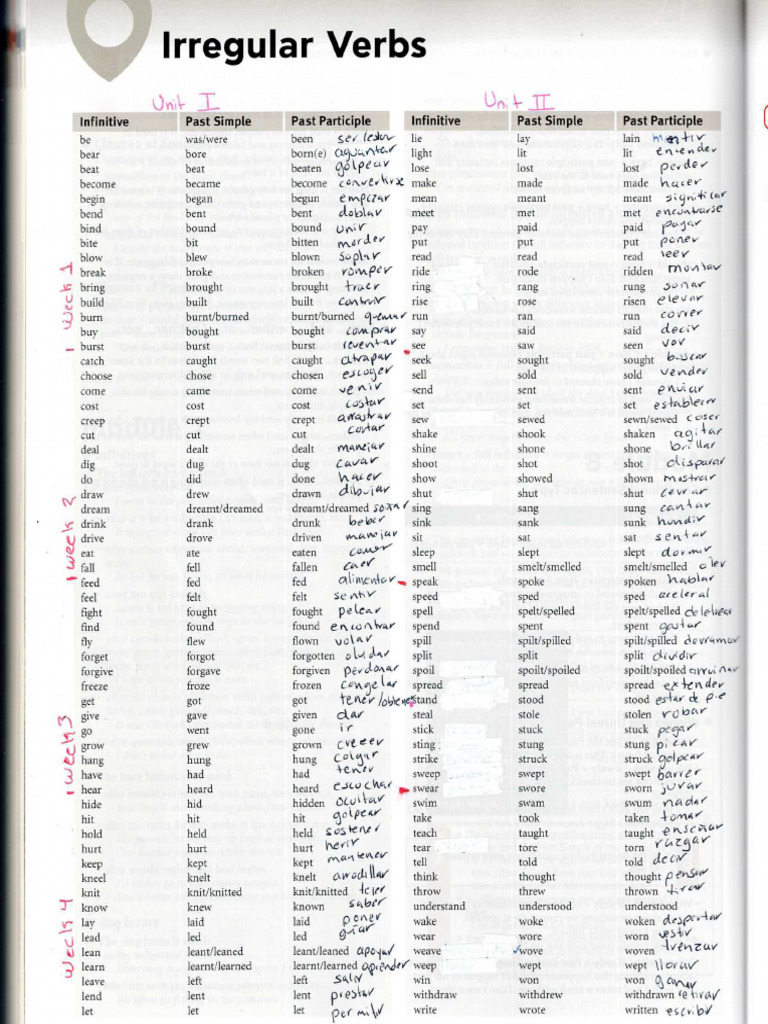 Irregular Verbs
Unit I
Unit II
Infinitive Past Simple Past Participle
be was/were been ser/estar
bear bore born(e) aguantar
beat beat beaten golpear
become became become convertirse
begin began begun empezar
bend bent bent doblar
bind bound bound unir
bite bit bitten morder
blow blew blown soplar
break broke broken romper
bring brought brought traer
build built built
burn burnt/burned burnt/burned quemar
buy bought bought comprar
burst burst burst reventar
catch caught caught atrapar
choose chose chosen escoger
come came come venir
cost cost cost costar
creep crept crept arrastrar
cut cut cut cortar
deal dealt dealt manejar
dig dug dug cavar
do did done hacer
draw drew drawn dibujar
dream dreamt/dreamed dreamt/dreamed soñar
drink drank drunk beber
drive drove driven manejar
eat ate eaten comer
fall fell fallen caer
feed fed fed alimentar
feel felt felt sentir
fight fought fought pelear
find found found encontrar
fly flew flown volar
forget forgot forgotten olvidar
forgive forgave forgiven perdonar
freeze froze frozen congelar
get got got tener/obtener
give gave given dar
go went gone ir
grow grew grown creeer
hang hung hung colgar
have had had tener
hear heard heard escuchar
hide hid hidden ocultar
hit hit hit golpear
hold held held sostener
hurt hurt hurt herir
keep kept kept mantener
kneel knelt knelt arrodillar
knit knit/knitted knit/knitted tejer
know knew known saber
lay laid laid poner
lead led led guiar
lean leant/leaned leant/leaned apoyar
learn learnt/learned learnt/learned aprender
leave left left salir
lend lent lent prestar
let let let permitir
week 1
week 2
week 3
week 4
Infinitive Past Simple Past Participle
lie lay lain mentir
light lit lit
lose lost lost perder
make made made hacer
mean meant meant significar
meet met met encontrarse
pay paid paid pagar
put put put poner
read read read leer
ride rode ridden montar
ring rang rung sonar
rise rose risen elevar
run ran run correr
say said said decir
see saw seen ver
seek sought sought buscar
sell sold sold vender
send sent sent enviar
set set set establecer
sew sewed sewn/sewed coser
shake shook shaken agitar
shine shone shone brillar
shoot shot shot disparar
show showed shown mostrar
shut shut shut cerrar
sing sang sung cantar
sink sank sunk hundir
sit sat sat sentar
sleep slept slept dormir
smell smelt/smelled smelt/smelled oler
speak spoke spoken hablar
speed sped sped aceleral
spell spelt/spelled spelt/spelled
spend spent spent gastar
spill spilt/spilled spilt/spilled derramar
split split split dividir
spoil spoilt/spoiled spoilt/spoiled arruinar
spread spread spread extender
stand stood stood estar de pie
steal stole stolen robar
stick stuck stuck pegar
sting stung stung picar
strike struck struck golpear
sweep swept swept barrer
swear swore sworn jurar
swim swam swum nadar
take took taken tomar
teach taught taught enseñar
tear tore torn razgar
tell told told decir
think thought thought pensar
throw threw thrown tirar
understand understood understood
wake woke woken despertar
wear wore worn vestir
weave wove woven trenzar
weep wept wept llorar
win won won ganar
withdraw withdrew withdrawn retirar
write wrote written escribir